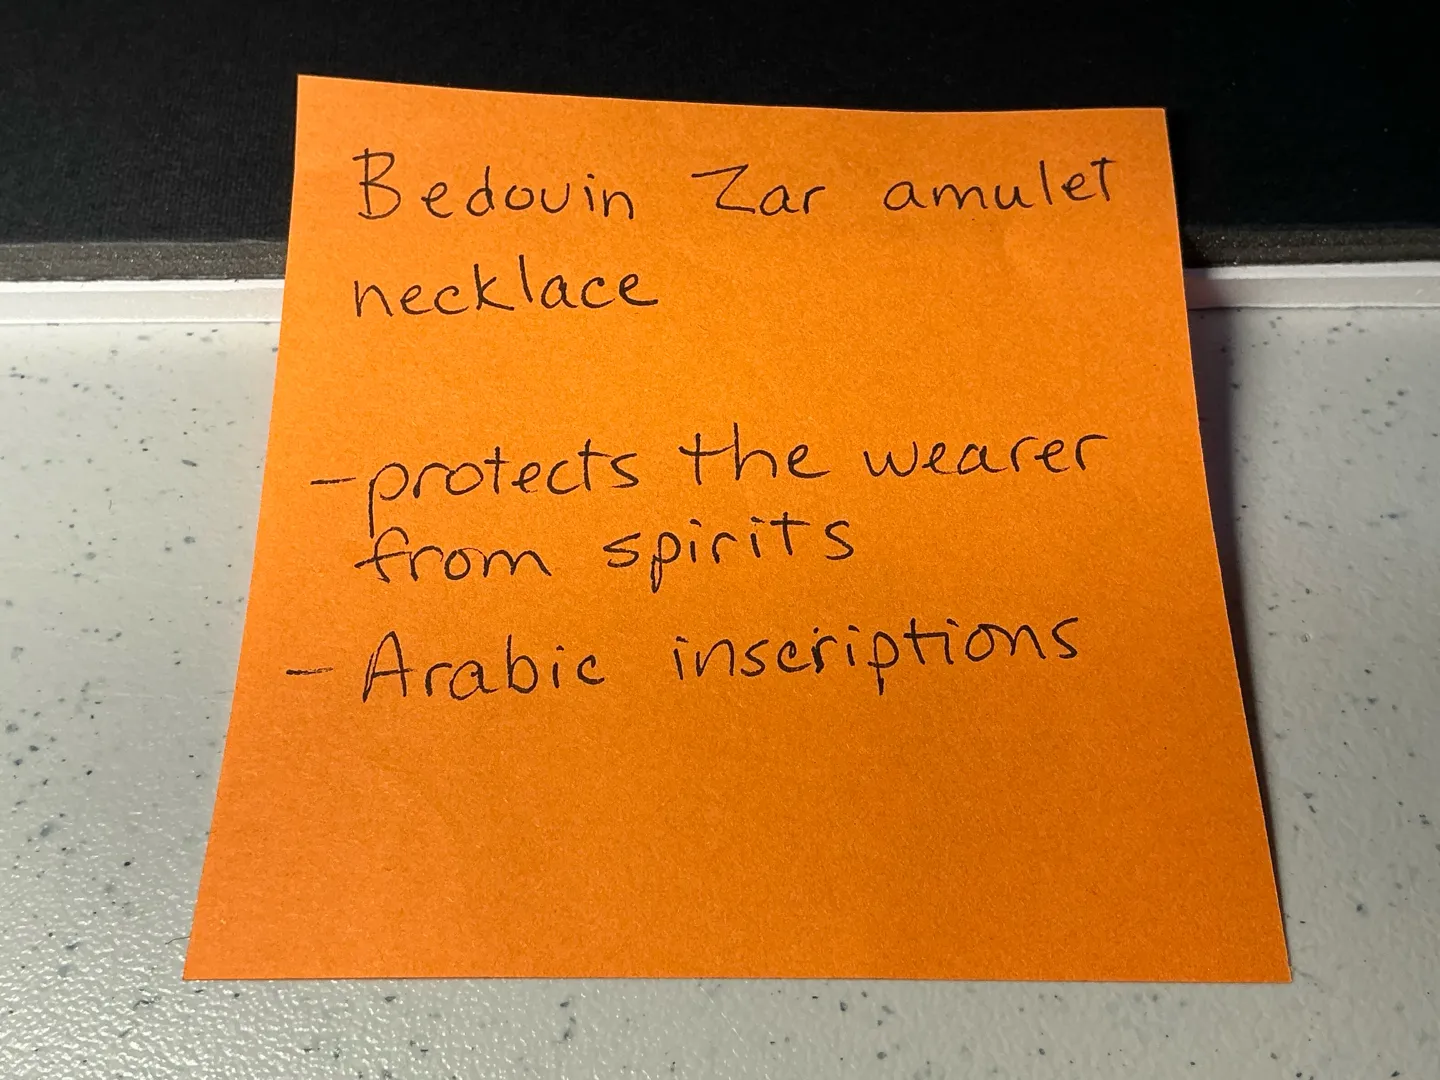 Bedouin Zar amulet
necklace
- protects the wearer
from spirits
- Arabic inscriptions